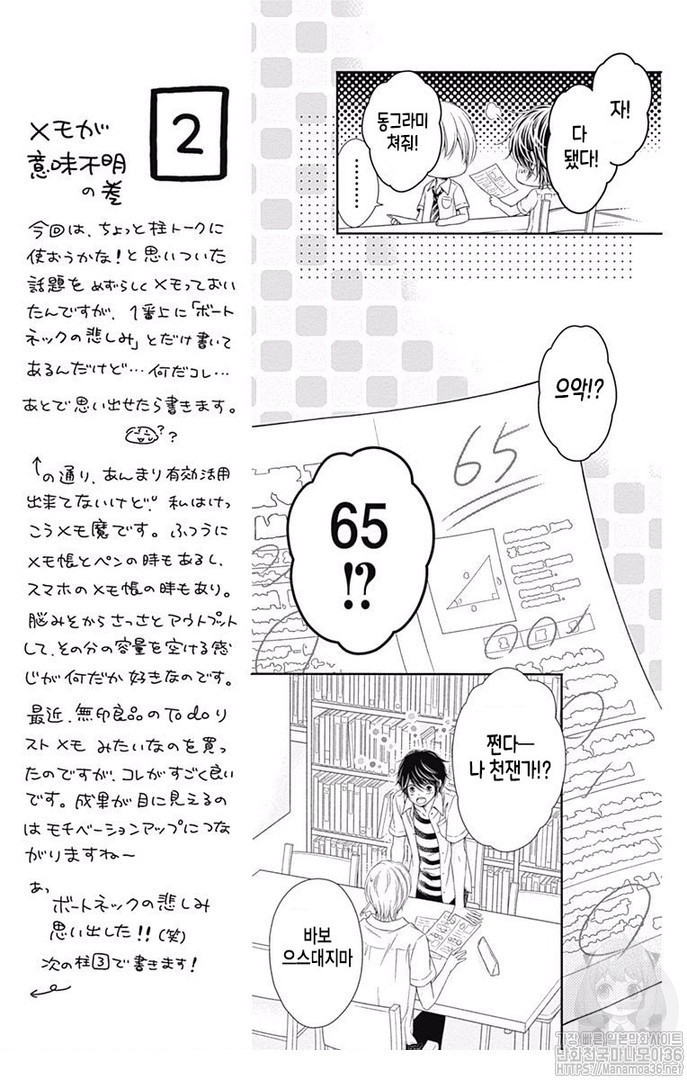 2
メモが
意味不明
の巻
今回は、ちょっと柱トークに
使おうかな!と思いついた
話題を めずらしくメモっておい
たんですが、1番上に「ボート
ネックの悲しみ」とだけ書いて
あるんだけど…何だコレ…
あとで思い出せたら書きます。
??
↑の通り、あんまり有効活用
出来てないけど、私はけっ
こうメモ魔です。ふつうに
メモ帳とペンの時もあるし、
スマホのメモ帳の時もあり。
脳みそからさっさとアウトプット
して、その分の容量を空ける感
じが何だか好きなのです。
最近、無印良品のTo doリ
ストメモ みたいなのを買っ
たのですが、コレがすごく良い
です。成果が目に見えるの
はモチベーションアップにつな
がりますね〜
あっ
ボートネックの悲しみ
思い出した!!(笑)
次の柱3で書きます!
자!
다
됐다!
동그라미
쳐줘!
……
으악!?
65
65
!?
쩐다—
나 천잰가!?
바보
으스대지마
가장 빠른 일본만화사이트
만화천국 마나모아36
HTTPS://Manamoa36.net